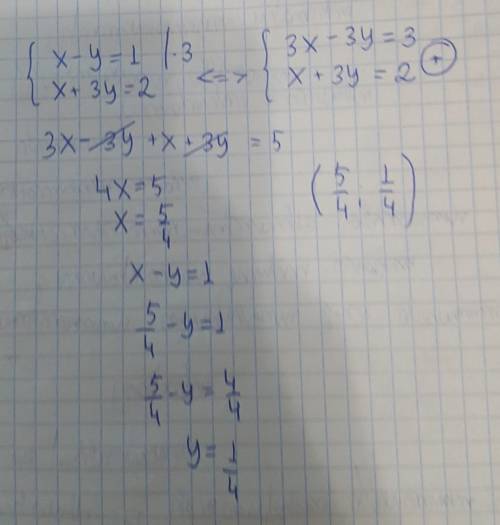 { x - y = 1 | · 3 <=> { 3x - 3y = 3
{ x + 3y = 2 { x + 3y = 2 (+)
3x - 3y + x + 3y = 5
4x = 5
x = 5/4
(5/4; 1/4)
x - y = 1
5/4 - y = 1
5/4 - y = 4/4
y = 1/4